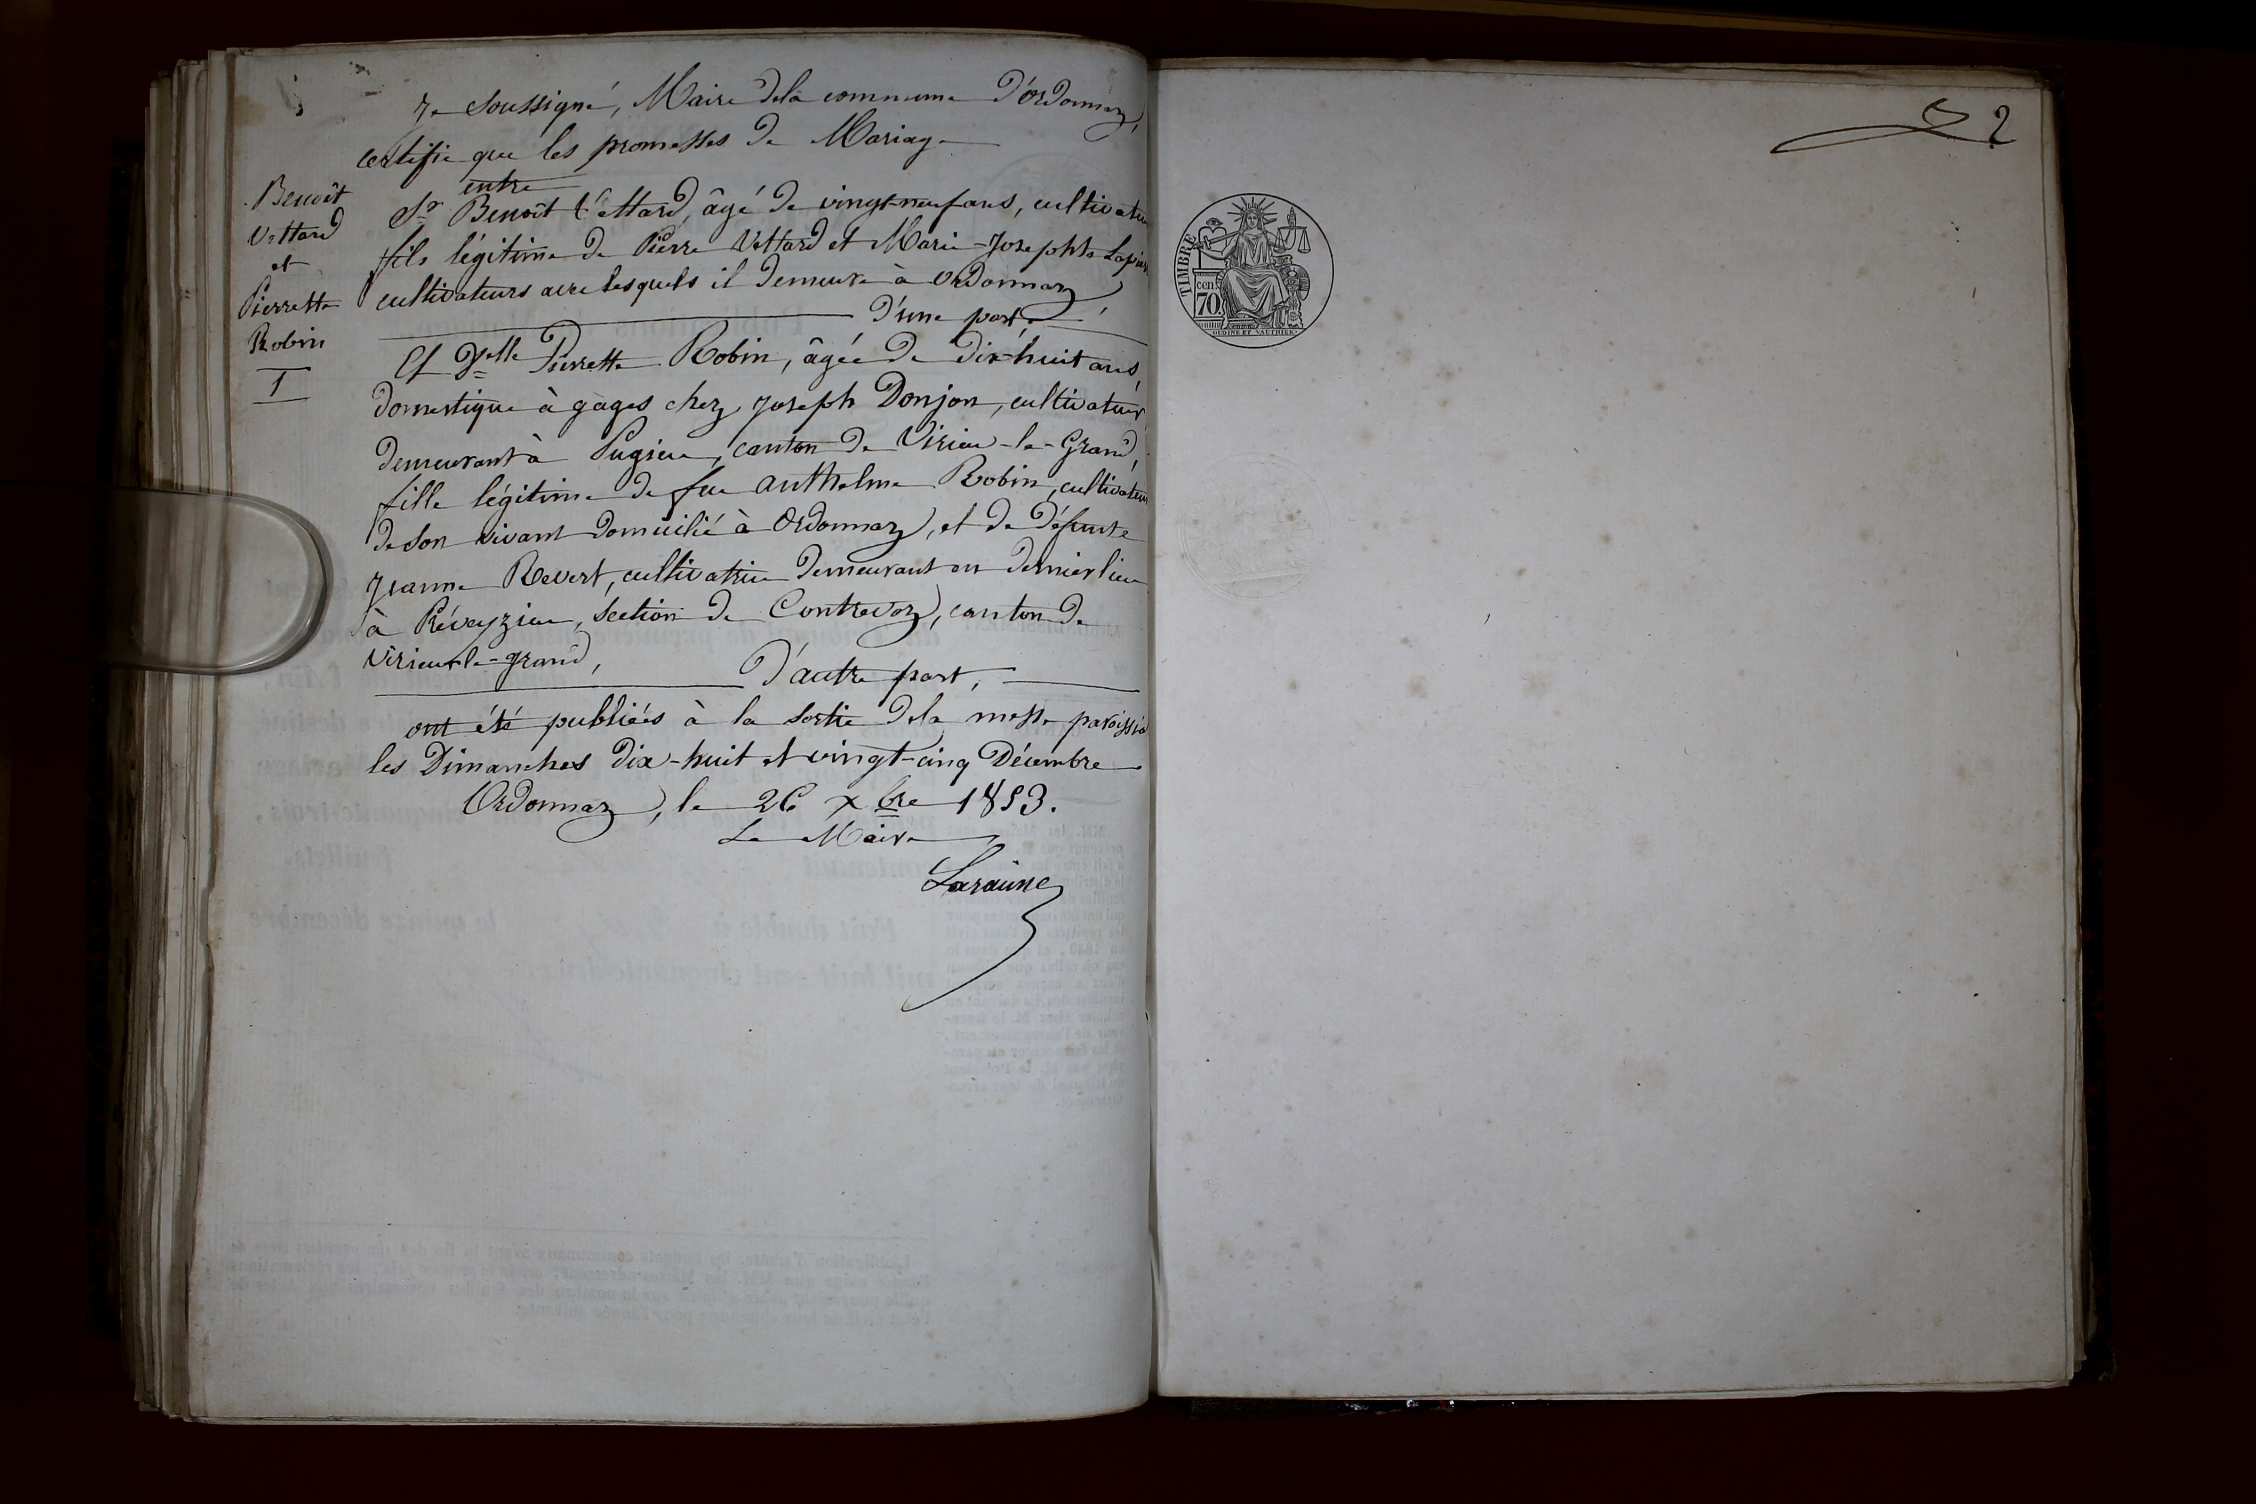 Je soussigné, Maire de la commune d'Ordonnaz,
certifie que les promesses de Mariage
entre
Benoît
Vettard
et
Pierrette
Robin
1
Sr Benoît Vettard, âgé de vingt-neuf ans, cultivateu
fils légitime de Pierre Vettard et Marie-Josephte
cultivateurs avec lesquels il demeure à Ordonnaz
d'une part,
Et Delle Pierrette Robin, âgée de dix-huit ans,
domestique à gages chez Joseph Donjon, cultivateur,
demeurant à Pugieu, canton de Virieu-le-Grand,
fille légitime de feu Anthelme Robin, cultivateur
de son vivant domicilié à Ordonnaz, et de défunte
Jeanne Revert, cultivatrice demeurant en dernier lieu
à Préveyzieu, section de Contrevoz, canton de
Virieu-le-grand,
D'autre part,
ont été publiées à la sortie de la messe paroissia
les Dimanches dix-huit et vingt-cinq Décembre
Ordonnaz, le 26 xbre 1853.
Le Maire
Laraine
2
TIMBRE
cen.
70
OUDINE ET VAUTHIER